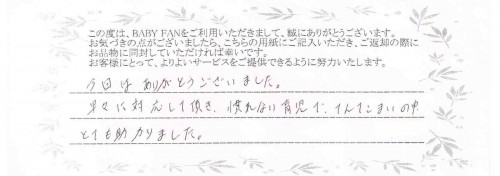 この度は、BABY FANをご利用いただきまして、誠にありがとうございます。
お気づきの点がございましたら、こちらの用紙にご記入いただき、ご返却の際に
お品物に同封していただければ幸いです。
お客様にとって、よりよいサービスをご提供できるように努力いたします。
今回は ありがとうございました。
早々に対応して頂き、慣れない育児で、てんてこまいの中、
とても助かりました。